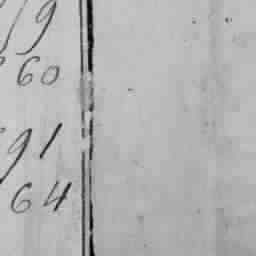 59
60
91
64